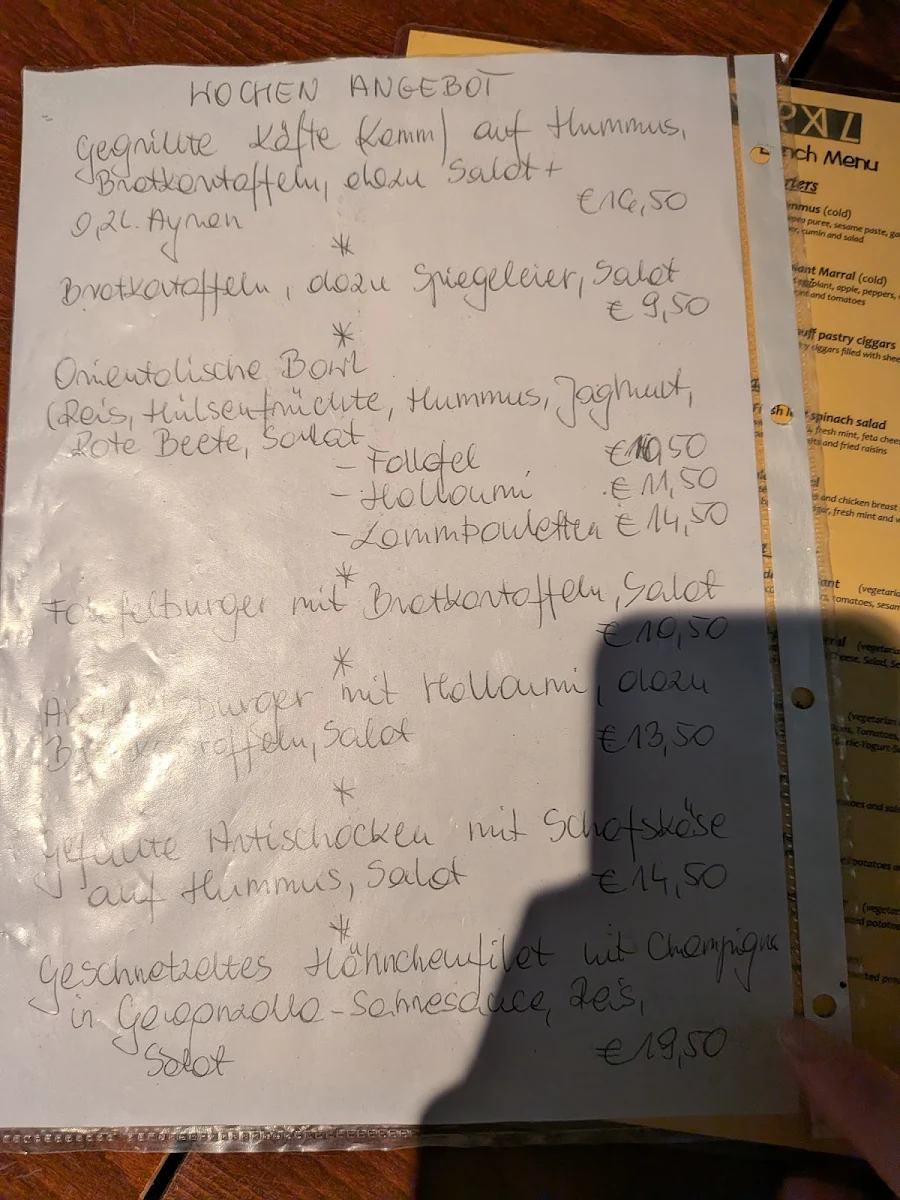 WOCHEN ANGEBOT
Gegrillte Käfte (Lamm) auf Hummus,
Bratkartoffeln, dazu Salat +
0,2l. Ayran
€16,50
*
Bratkartoffeln, dazu Spiegeleier, Salat
€ 9,50
*
Orientalische Bowl
(Reis, Hülsenfrüchte, Hummus, Joghurt,
Rote Beete, Salat
- Fallafel €10,50
- Halloumi €11,50
- Lammbouletten €14,50
*
Falafelburger mit Bratkartoffeln, Salat
€10,50
*
burger mit Halloumi, dazu
Bratkartoffeln, Salat €13,50
*
gefüllte Artischocken mit Schafskäse
auf Hummus, Salat €14,50
*
Geschnetzeltes Hähnchenfilet mit Champigno
in Sahnesauce, Reis,
Salat €19,50
RXL
nch Menu
rters
mmus (cold)
puree, sesame paste,
cumin and salad
lant Marral (cold)
eggplant, apple, peppers,
and tomatoes
uff pastry ciggars
ciggars filled with
spinach salad
fresh mint, feta
and fried raisins
and chicken breast
fresh mint and
(vegetaria
tomatoes,
(vegetaria
Cheese, Salad,
(vegetarian
Tomatoes,